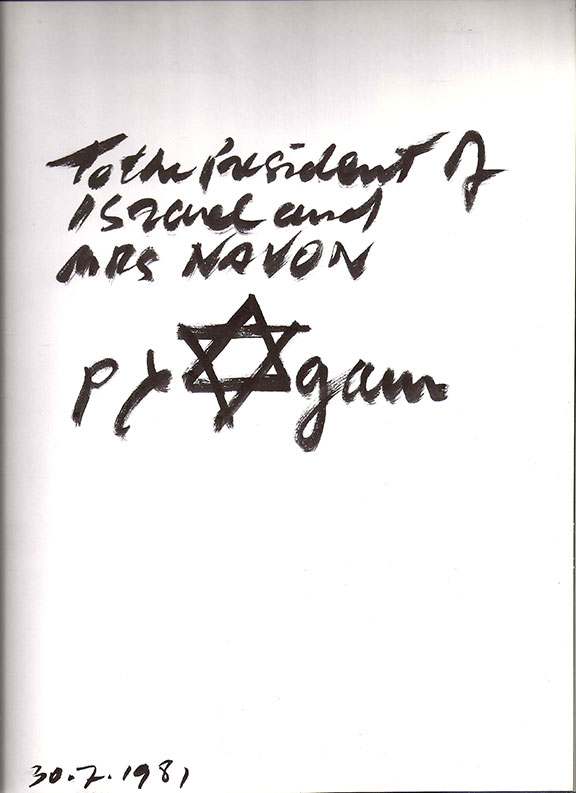 To the President of
Israel and
MRS NAVON
גם✡gam
30.7.1981